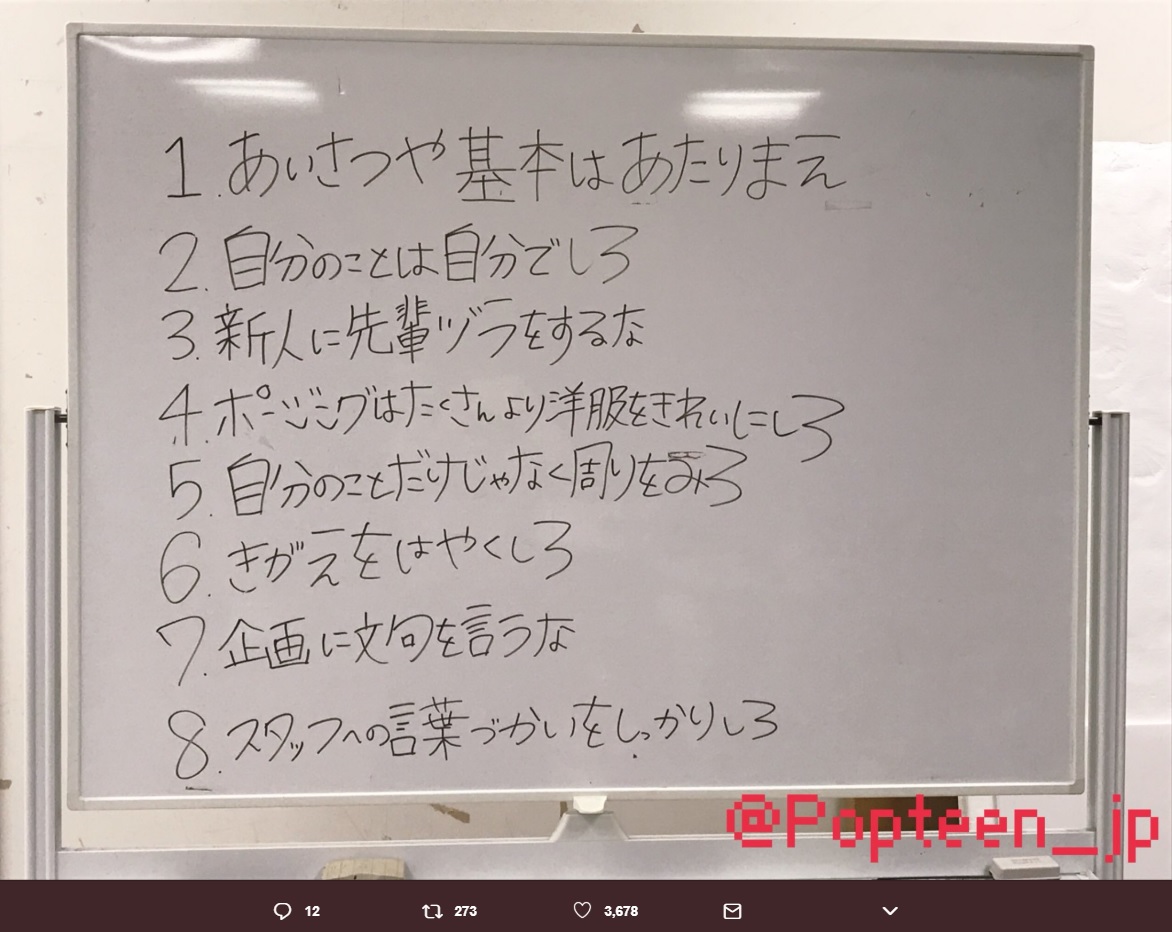 1.あいさつや基本はあたりまえ
2.自分のことは自分でしろ
3.新人に先輩ヅラをするな
4.ポージングはたくさんより洋服をきれいにしろ
5.自分のことだけじゃなく周りをみろ
6.きがえをはやくしろ
7.企画に文句を言うな
8.スタッフへの言葉づかいをしっかりしろ
@Popteen_jp
12 273 3,678